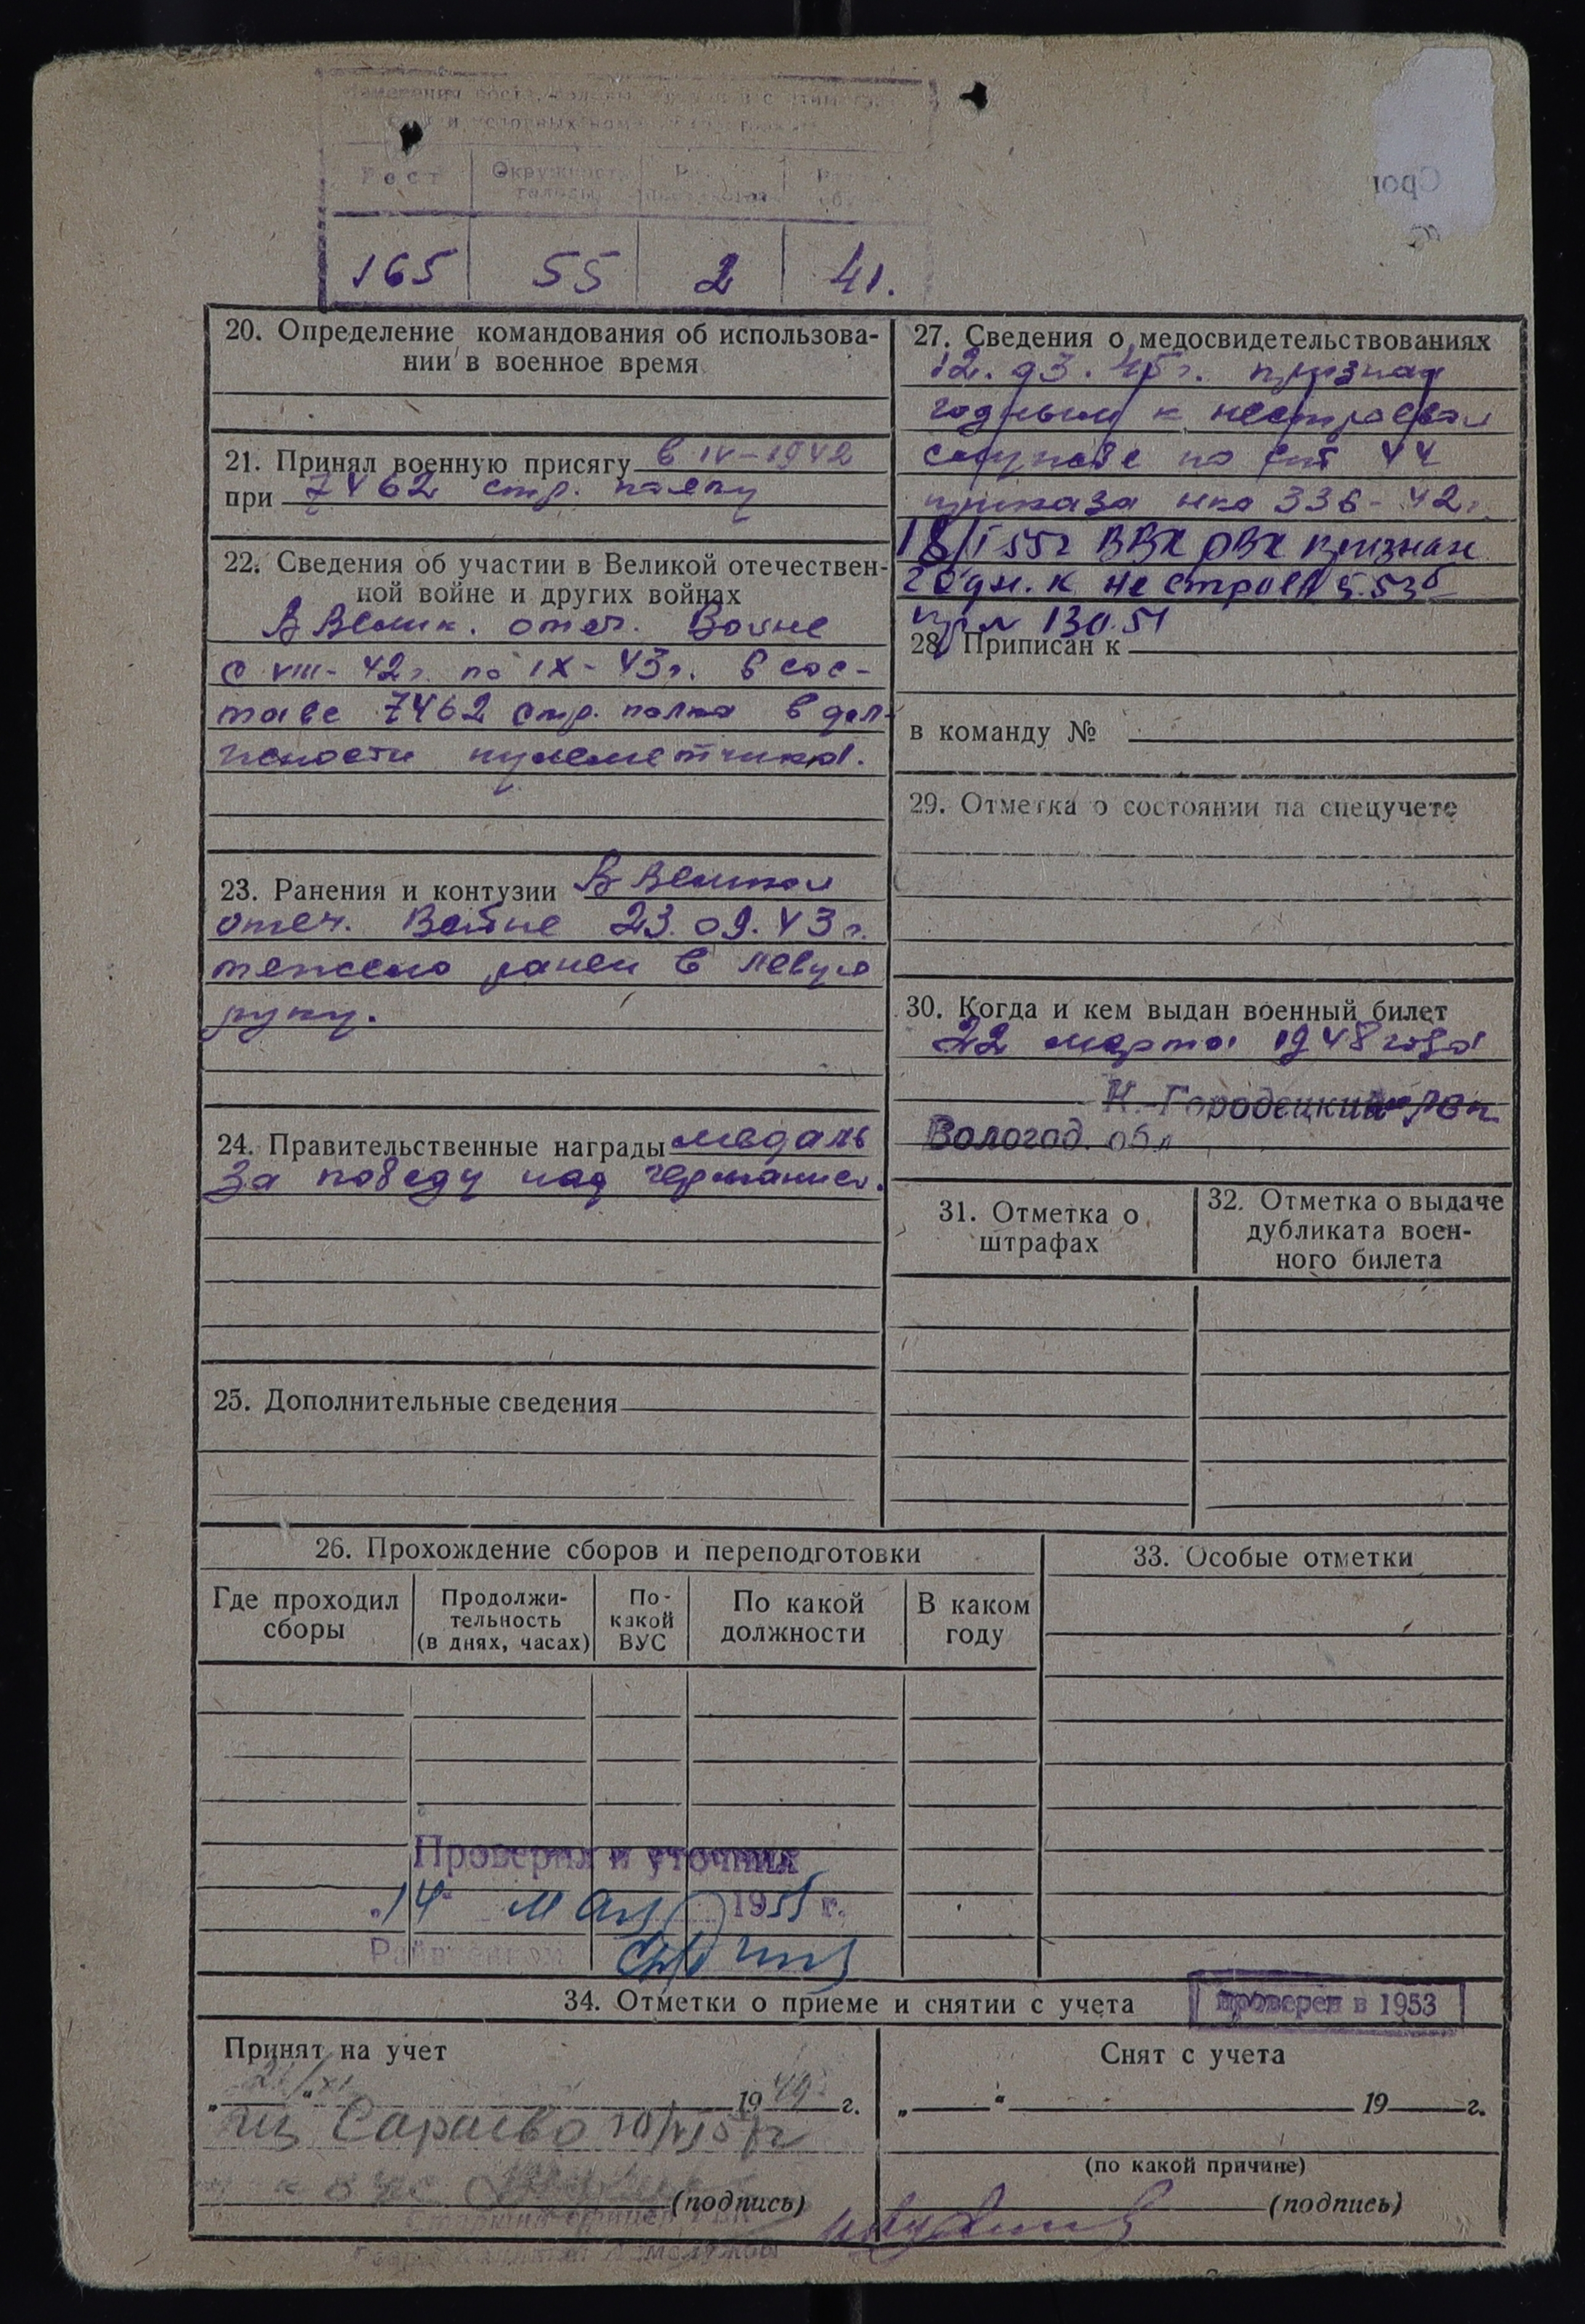 Рост
Окружность головы
165 55 2 41.
20. Определение командования об использова-
нии в военное время
21. Принял военную присягу в IV-1942
при 7462 стр. полку
22. Сведения об участии в Великой отечествен-
ной войне и других войнах
В Велик. отеч. Войне
с VIII-42г. по IX-43г. в сос-
таве 7462 стр. полка в дол-
жности пулеметчика.
23. Ранения и контузии В Великой
отеч. Войне 23.09.43г.
тяжело ранен в левую
руку.
24. Правительственные награды медаль
За победу над германией.
25. Дополнительные сведения
27. Сведения о медосвидетельствованиях
12.93.45г. признан
годным к нестроевой
службе по ст 44
приказа нко 336-42г.
18/I 55г ВВК РВК признан
годн. к нестроев
пр № 130.51
28. Приписан к
в команду №
29. Отметка о состоянии на спецучете
30. Когда и кем выдан военный билет
22 марта 1948 года
К.-Городецким РВК
Вологод. обл
31. Отметка о
штрафах
32. Отметка о выдаче
дубликата воен-
ного билета
26. Прохождение сборов и переподготовки
Где проходил
сборы
Продолжи-
тельность
(в днях, часах)
По-
какой
ВУС
По какой
должности
В каком
году
33. Особые отметки
Проверил и уточнил
„14“ мая 1955 г.
34. Отметки о приеме и снятии с учета
проверен в 1953
Принят на учет
1949 г.
из Сараево
(подпись)
Снят с учета
„ “ 19 г.
(по какой причине)
(подпись)